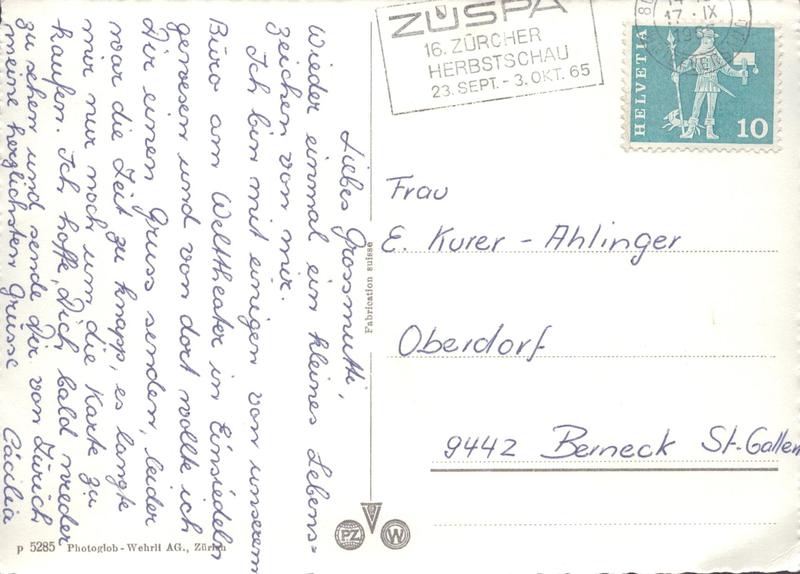 Liebes Grossmutti,
Wieder einmal ein kleines Lebens=
zeichen von mir.
Ich bin mit einigen von unserem
Büro am Welttheater in Einsiedeln
gewesen und von dort wollte ich
Dir einen Gruss senden, leider
war die Zeit zu knapp, es langte
mir nur noch um die Karte zu
kaufen. Ich hoffe, Dich bald wieder
zu sehen und sende Dir von Zürich
meine herzlichsten Grüsse
Cäcilia
p 5285 Photoglob-Wehrli AG., Zürich
Fabrication suisse
PZ
W
ZÜSPA
16. ZÜRCHER
HERBSTSCHAU
23. SEPT. - 3. OKT. 65
17. IX
HELVETIA
10
Frau
E. Kurer - Ahlinger
Oberdorf
9442 Berneck St-Gallen